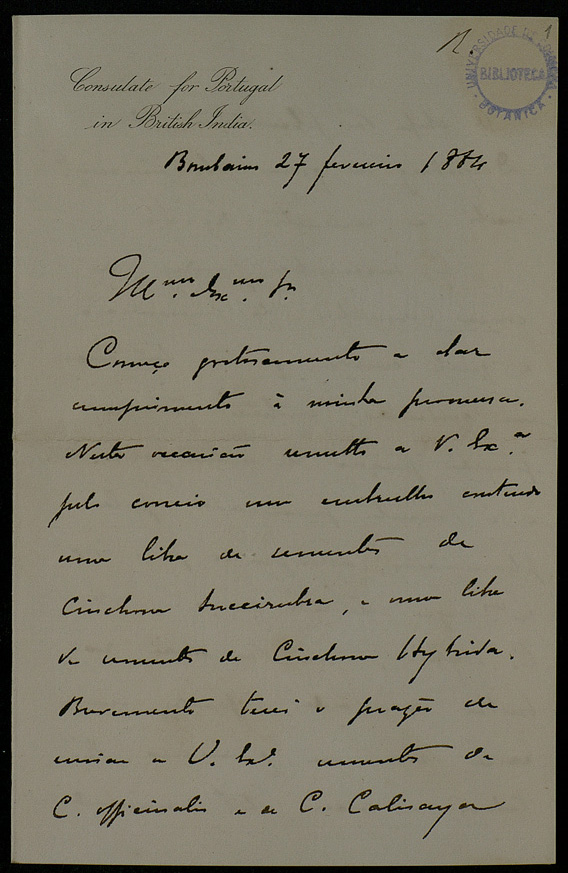 1
UNIVERSIDADE DE COIMBRA
BIBLIOTECA
BOTANICA
Consulate for Portugal
in British India.
Bombaim 27 fevereiro 1884
Illmo. Exmo. Sr.
Começo gostosamente a dar
cumprimento à minha promessa.
Nesta occasião remetto a V. Exa.
pelo correio um embrulho contendo
uma libra de sementes de
Cinchona Succirubra, e uma libra
de sementes de Cinchona Hybrida.
Brevemente terei o prazer de
enviar a V. Exa. sementes de
C. officinalis e de C. Calisaya